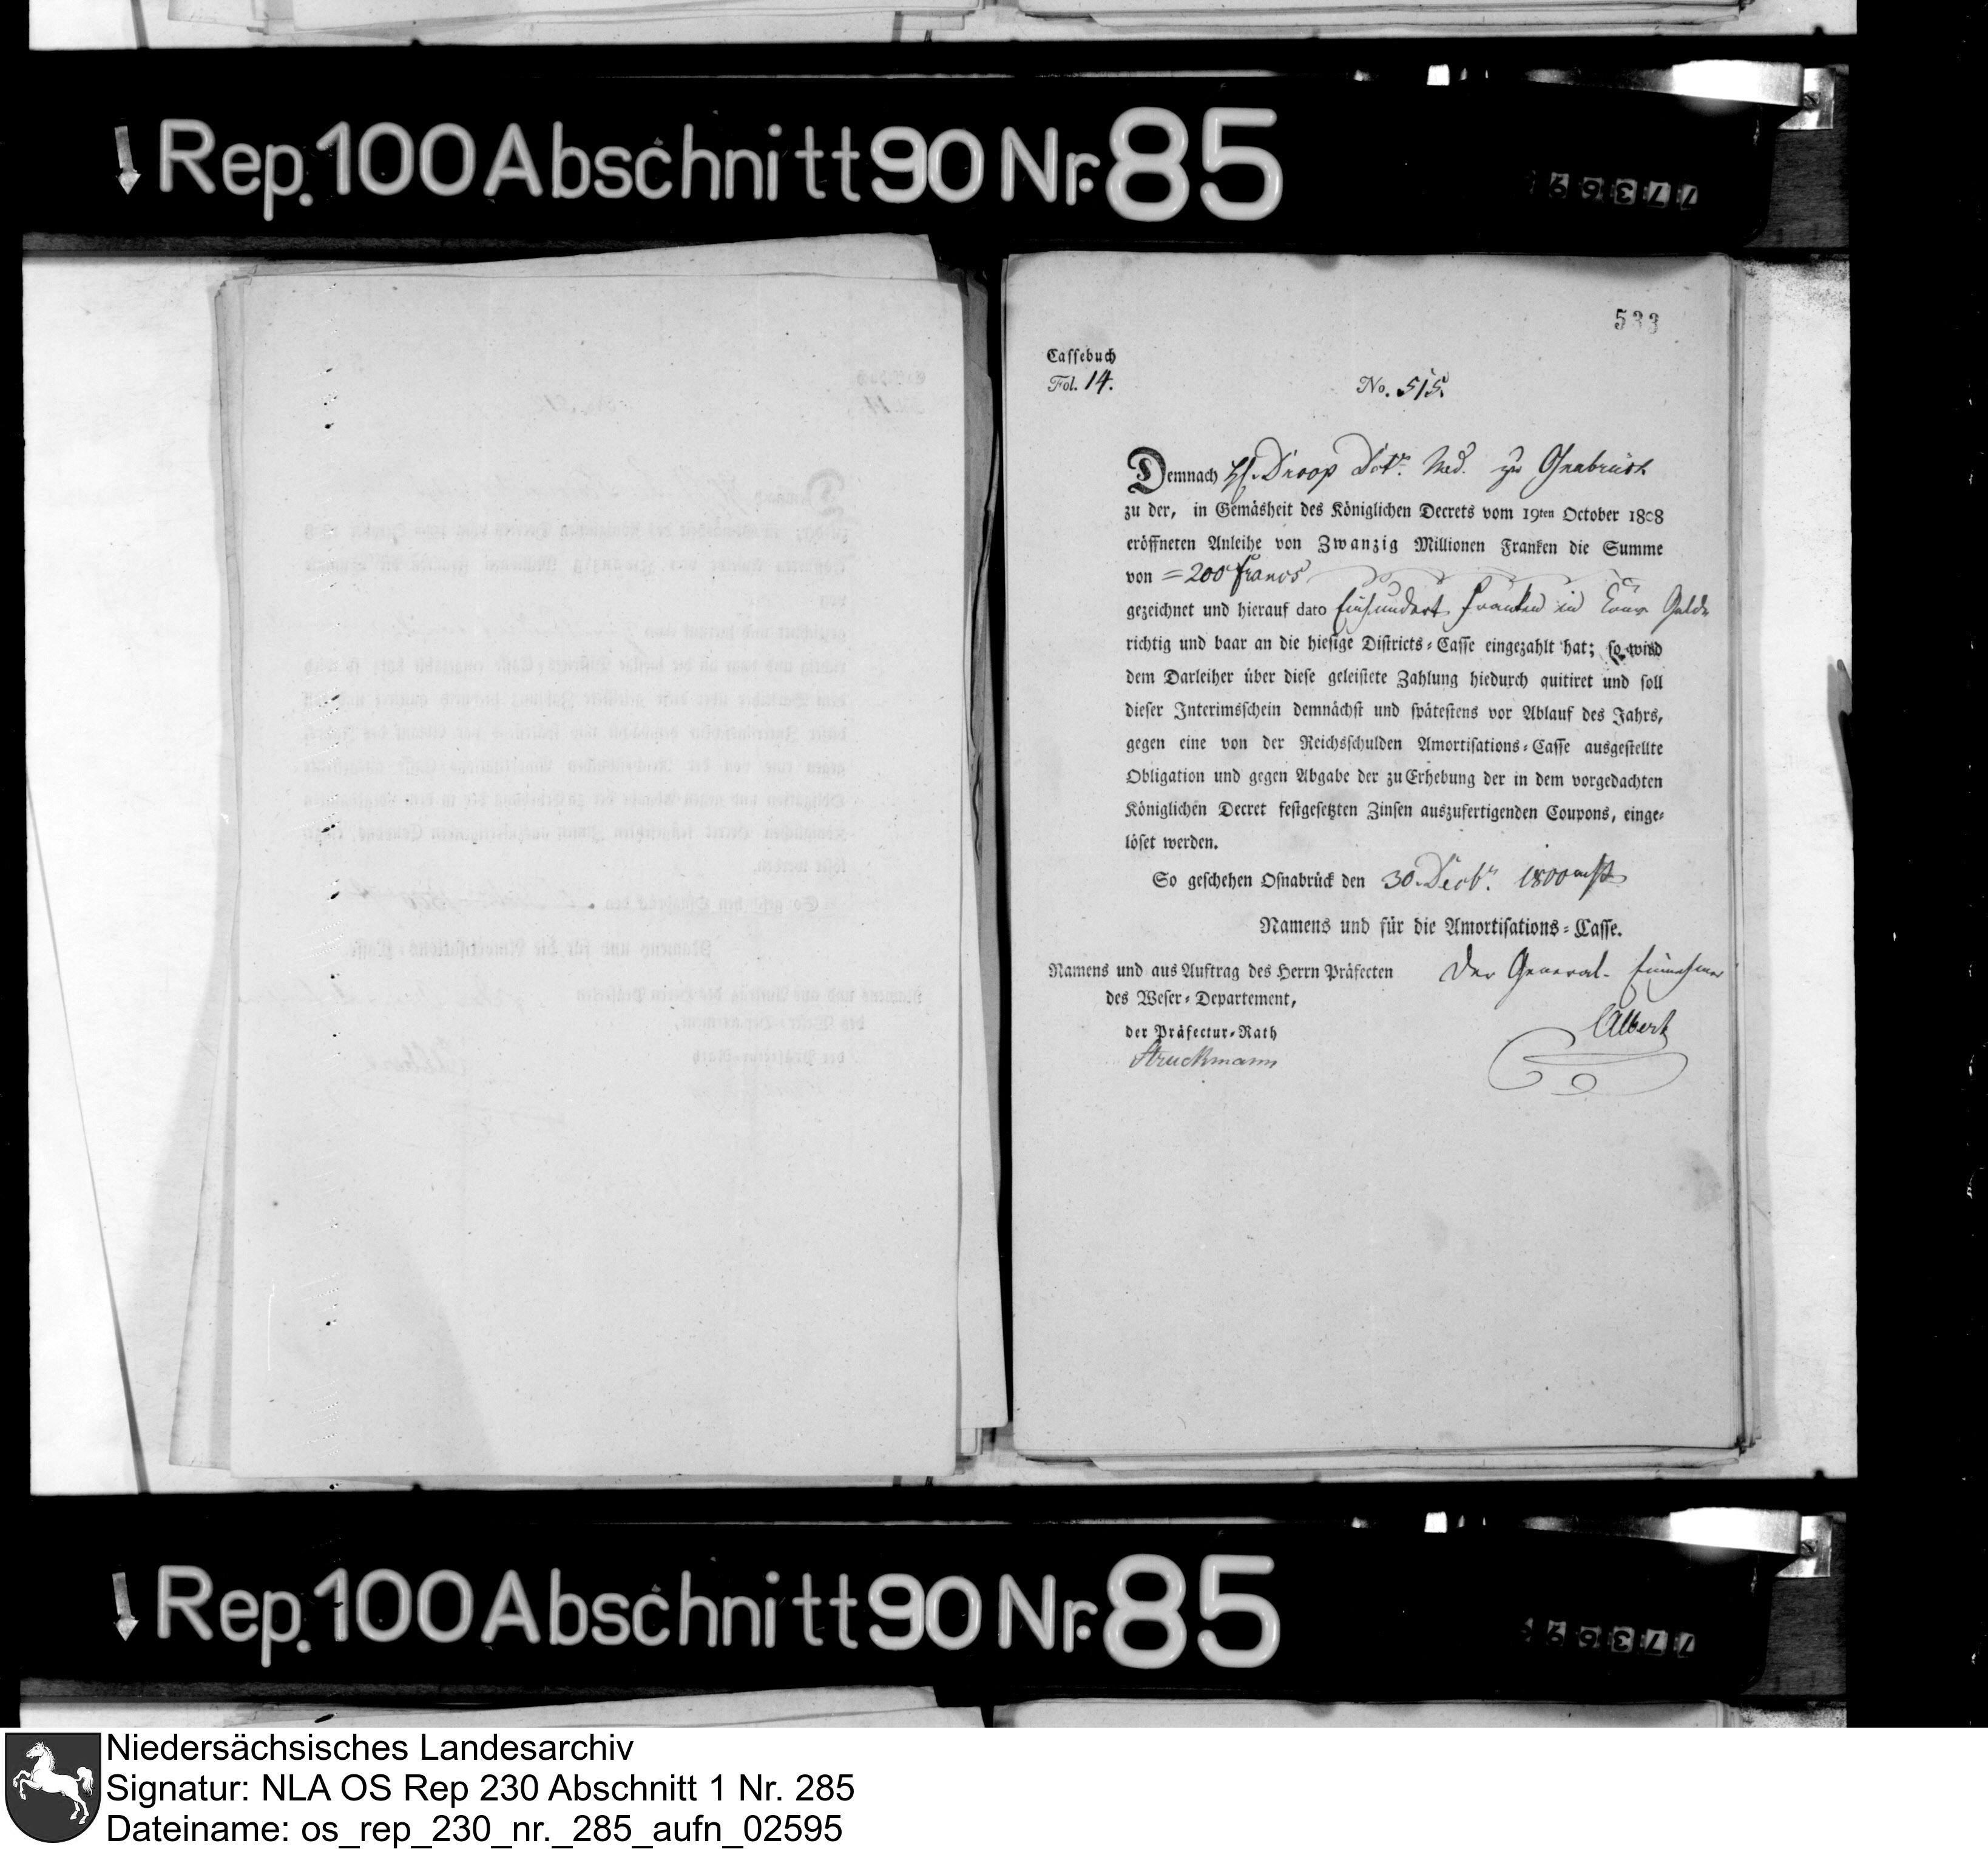 Rep. 100 Abschnitt 90 Nr. 85
533
Cassebuch
Fol. 14.
No. 515.
Demnach H. Droop Dctr. Med. zu Osnabrück
zu der, in Gemäsheit des Königlichen Decrets vom 19ten October 1808
eröffneten Anleihe von Zwanzig Millionen Franken die Summe
von = 200 francs
gezeichnet und hierauf dato Einhundert Franken in Conv. Gelde
richtig und baar an die hiesige Districts-Casse eingezahlt hat; so wird
dem Darleiher über diese geleistete Zahlung hiedurch quitiret und soll
dieser Interimsschein demnächst und spätestens vor Ablauf des Jahrs,
gegen eine von der Reichsschulden Amortisations-Casse ausgestellte
Obligation und gegen Abgabe der zu Erhebung der in dem vorgedachten
Königlichen Decret festgesetzten Zinsen auszufertigenden Coupons, einge-
löset werden.
So geschehen Osnabrück den 30. Decbr. 1800 acht
Namens und für die Amortisations-Casse.
Namens und aus Auftrag des Herrn Präfecten
des Weser-Departement,
der Präfectur-Rath
Struckmann
Der General-Einnehmer
Albert
Rep. 100 Abschnitt 90 Nr. 85
Niedersächsisches Landesarchiv
Signatur: NLA OS Rep 230 Abschnitt 1 Nr. 285
Dateiname: os_rep_230_nr._285_aufn_02595